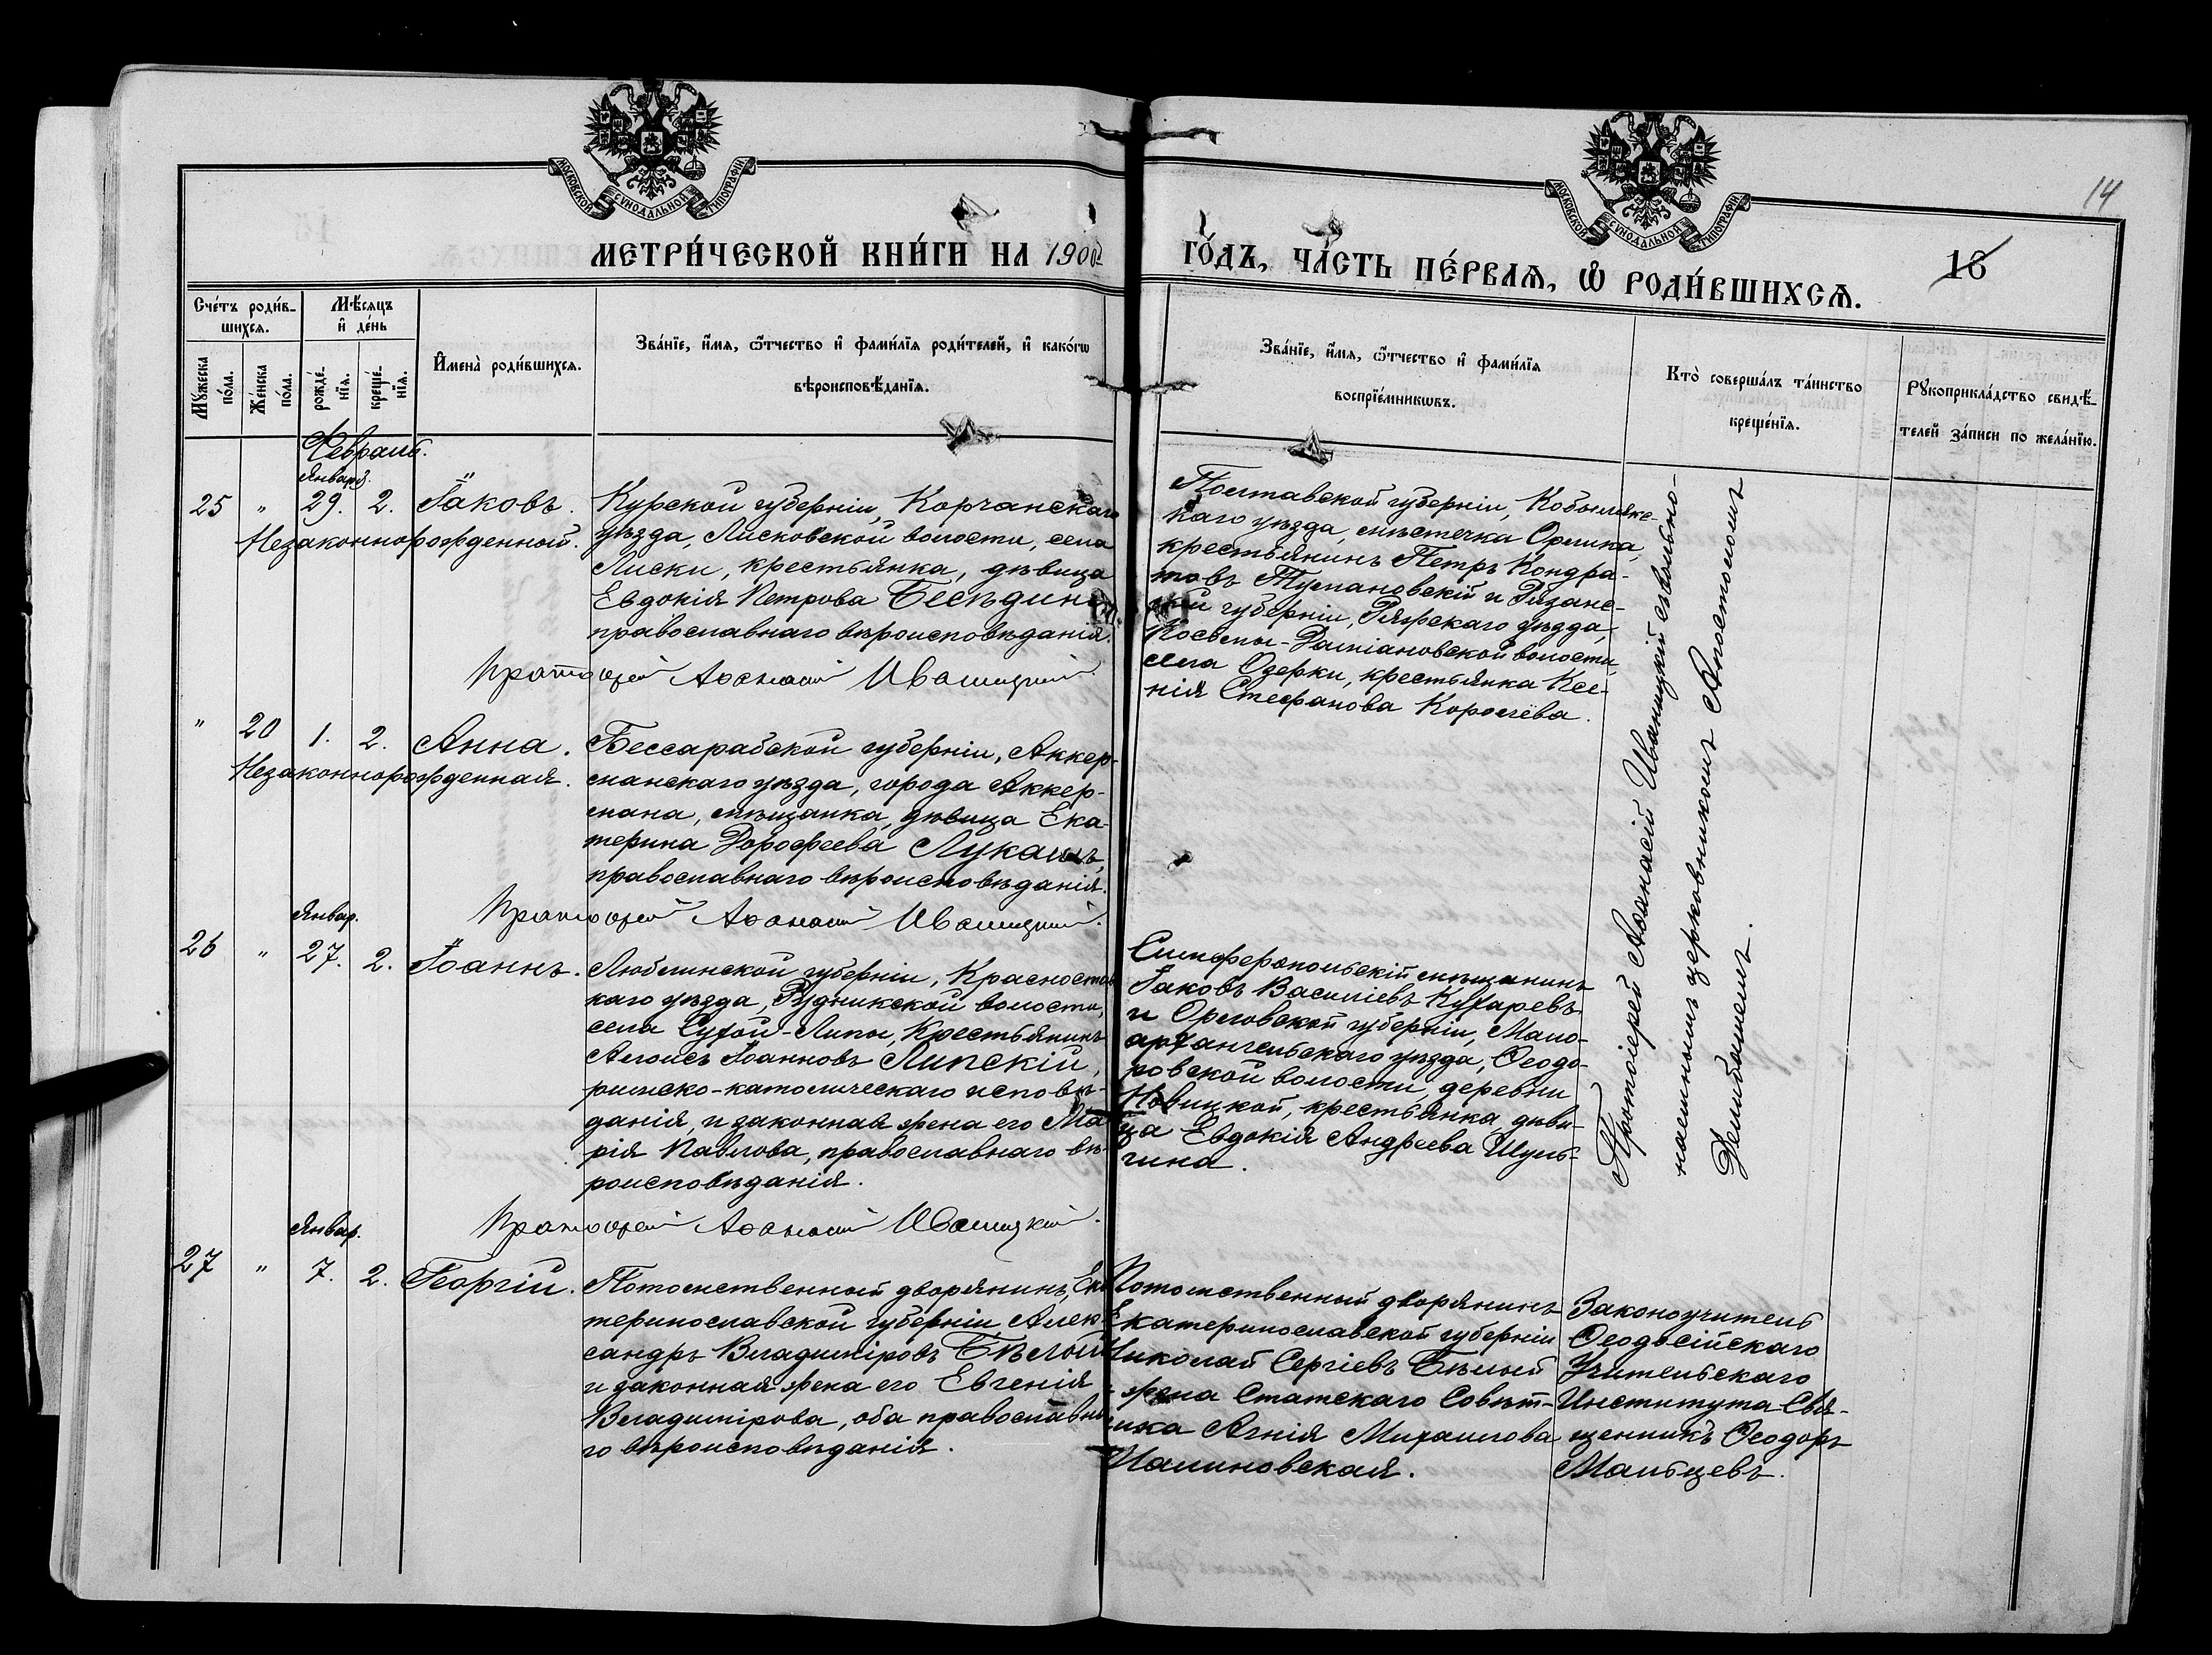 МОСКОВСКОЙ СУНОДАЛЬНОЙ ТИПОГРАФІИ
МОСКОВСКОЙ СУНОДАЛЬНОЙ ТИПОГРАФІИ
14
МЕТРИ́ЧЕСКОЙ КНИ́ГИ НА 1902
ГО́ДЪ, ЧА́СТЬ ПЕ́РВАЯ, Ѡ РОДИ́ВШИХСѦ.
16
Сче́тъ роди́в-
шихсѧ.
Мѣ́сѧцъ
и҆ де́нь
Мꙋ́жеска
по́ла.
Же́нска
по́ла.
рожде́-
нїѧ.
креще́-
нїѧ.
И҆мена̀ роди́вшихсѧ.
Зва́нїе, и҆́мѧ, ѻ҆́тчество и҆ фами́лїѧ роди́телей, и҆ како́гѡ
вѣроисповѣ́данїѧ.
Зва́нїе, и҆́мѧ, ѻ҆́тчество и҆ фами́лїѧ
воспрїе́мникѡвъ.
Кто̀ соверша́лъ та́инство
креще́нїѧ.
Рꙋкоприкла́дство свидѣ́-
телей за́писи по жела́нїю.
Февраль.
Января.
25 " 29. 2. Іаковъ.
Незаконнорожденный.
Курской губерніи, Корчанскаго
уѣзда, Лисковской волости, села
Лиски, крестьянка, дѣвица
Евдокія Петрова Бесѣдина
православнаго вѣроисповѣданія.
Протоіерей Аѳанасій Иваницкій.
Полтавской губерніи, Кобылякс-
каго уѣзда, мѣстечка Орлика,
крестьянинъ Петръ Кондра-
товъ Тумановскій и Рязанс-
кой губерніи, Ряжскаго уѣзда,
Косьмы-Даміановской волости,
села Озерки, крестьянка Ксе-
нія Стефанова Королёва.
" 20 1. 2. Анна.
Незаконнорожденная.
Бессарабской губерніи, Аккер-
манскаго уѣзда, города Аккер-
мана, мѣщанка, дѣвица Ека-
терина Дорофеева
православнаго вѣроисповѣданія.
Протоіерей Аѳанасій Иваницкій.
Январ.
26 " 27. 2. Іоаннъ.
Люблинской губерніи, Красностав
каго уѣзда, Рудникской волости,
села Сухой-Липы, крестьянинъ
Алоисъ Іоанновъ Липскій,
римско-католическаго исповѣ-
данія, и законная жена его Ма
рія Павлова, православнаго вѣ-
роисповѣданія.
Протоіерей Аѳанасій Иваницкій.
Симферопольскій мѣщанинъ
Іаковъ Василіевъ Кухаревъ
и Орловской губерніи, Мало-
архангельскаго уѣзда, Ѳеодо-
ровской волости, деревни
Новицкой, крестьянка, дѣви-
ца Евдокія Андреева Шуль-
гина.
Протоіерей Аѳанасій Иваницкій съ вольно-
наемнымъ церковникомъ Апостоломъ
Январ.
27 " 7. 2. Георгій.
Потомственный дворянинъ, Ека
теринославской губерніи Алек
сандръ Владиміровъ Бѣлый
и законная жена его Евгенія
Владимірова, оба православна
го вѣроисповѣданія.
Потомственный дворянинъ
Екатеринославской губерніи
Николай Сергіевъ Бѣлый
жена Статскаго Совѣт-
ника Агнія Михаилова
Малиновская.
Законоучитель
Ѳеодосійскаго
Учительскаго
Института Свя-
щенникъ Ѳеодоръ
Мальцевъ.